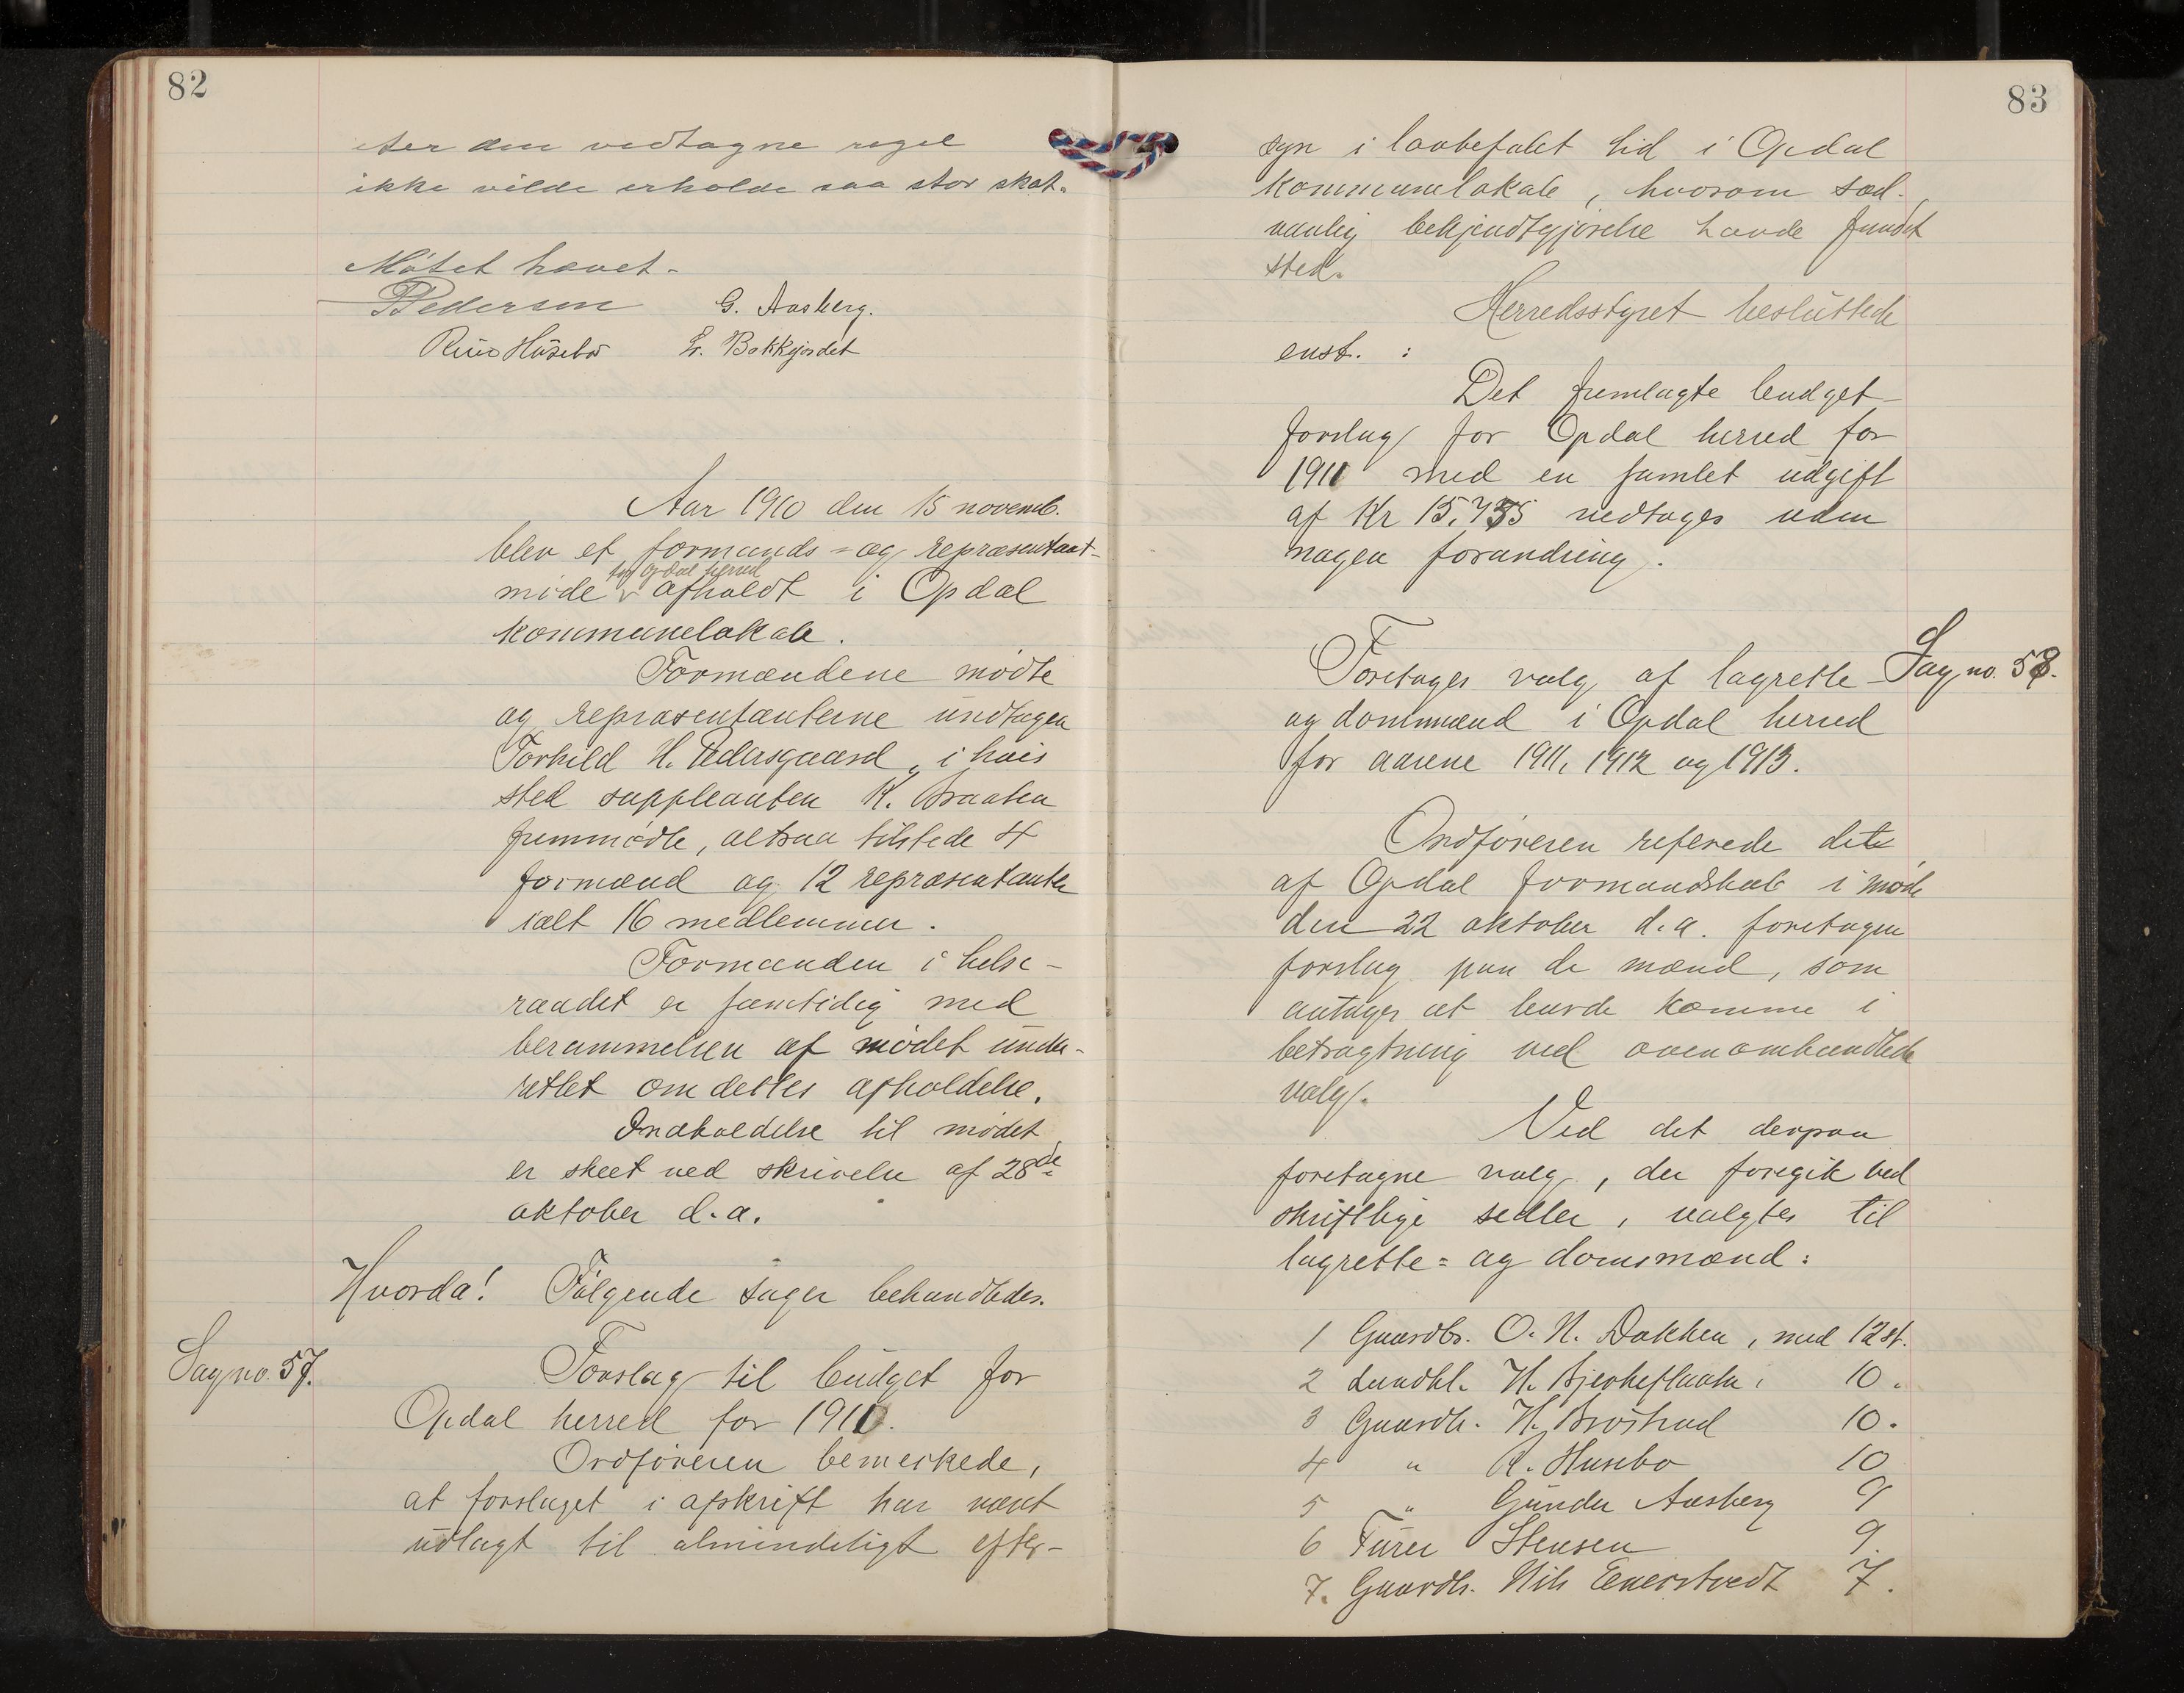 82
efter den vedtagne regel
ikke vilde erholde saa stor skat.
Møtet hævet.
Pedersen G. Aasberg.
Husebø E. Bakkjordet
Aar 1910 den 15 novemb.
blev et formands- og repræsentant-
for Opdal herred
møde v afholdt i Opdal
kommunelokale.
Formændene mødte
og repræsentanterne undtagen
Torkild H. Pedersgaard, i hvis
sted suppleanten K. Braaten
fremmødte, altsaa tilstede 4
formænd og 12 repræsentanter
ialt 16 medlemmer.
Formanden i helse-
raadet er samtidig med
berammelsen af mødet under-
rettet om dettes afholdelse.
Indkaldelse til mødet
er skeet ved skrivelse af 28de
oktober d.a.
Hvorda! Følgende sager behandledes.
Sag no. 57.
Forslag til budget for
Opdal herred for 1911.
Ordføreren bemerkede,
at forslaget i afskrift har været
udlagt til almindeligt efter-
83
syn i lovbefalet tid i Opdal
kommunelokale, hvorom sæd-
vanlig bekjendtgjørelse havde fundet
sted.
Herredsstyret besluttede
enst. :
Det fremlagte budget-
forslag for Opdal herred for
1911 med en samlet udgift
af Kr 15,735 vedtages uden
nogen forandring.
Foretages valg af lagrette- Sag no. 58.
og dommænd i Opdal herred
for aarene 1911, 1912 og 1913.
Ordføreren referede det
af Opdal formandskab i møde
den 22 oktober d.a. foretagen
forslag paa de mænd, som
antages at burde komme i
betragtning ved ovenomhandlede
valg.
Ved det derpaa
foretagne valg, der foregik ved
skriftlige sedler, valgtes til
lagrette= og domsmænd:
1 Gaardbr. O. N. Dokken, med 12 st.
2 Landhl. H. Bjerkeflaata, 10.
3 Gaardb. H. Brøstrud 10.
4 " R. Husebø 10
5 " Gunder Aasberg 9
6 Furer Stensen 9.
7. Gaardb. Nils Enerstvedt 7.